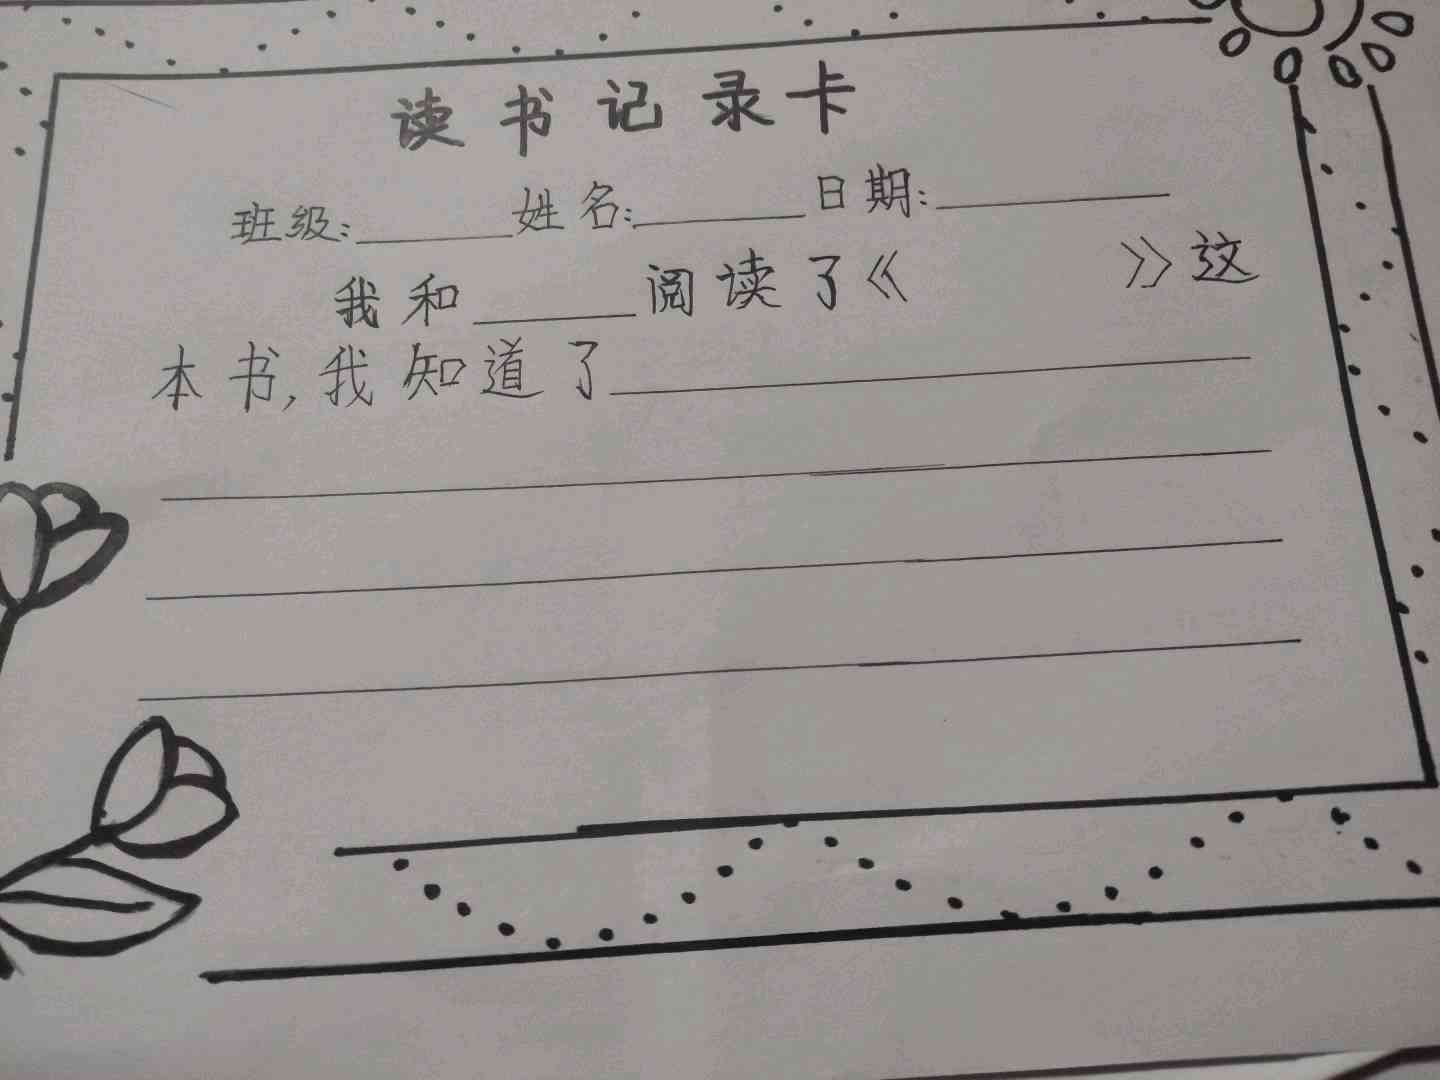 读书记录卡
班级:______姓名:______日期:________
我和______阅读了《 》这
本书,我知道了________________